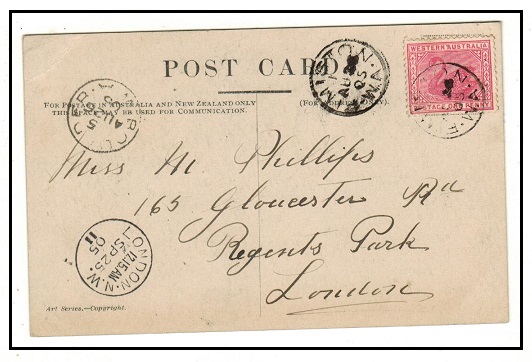 POST CARD
WESTERN AUSTRALIA
POSTAGE ONE PENNY
FOR POSTAGE IN AUSTRALIA AND NEW ZEALAND ONLY
THIS SPACE MAY BE USED FOR COMMUNICATION.
(FOR ADDRESS ONLY.)
Miss M. Phillips
165 Gloucester Rd
Regents Park
London
LONDON. N.W.
12.15AM
SP 25
05
11
Art Series.—Copyright.